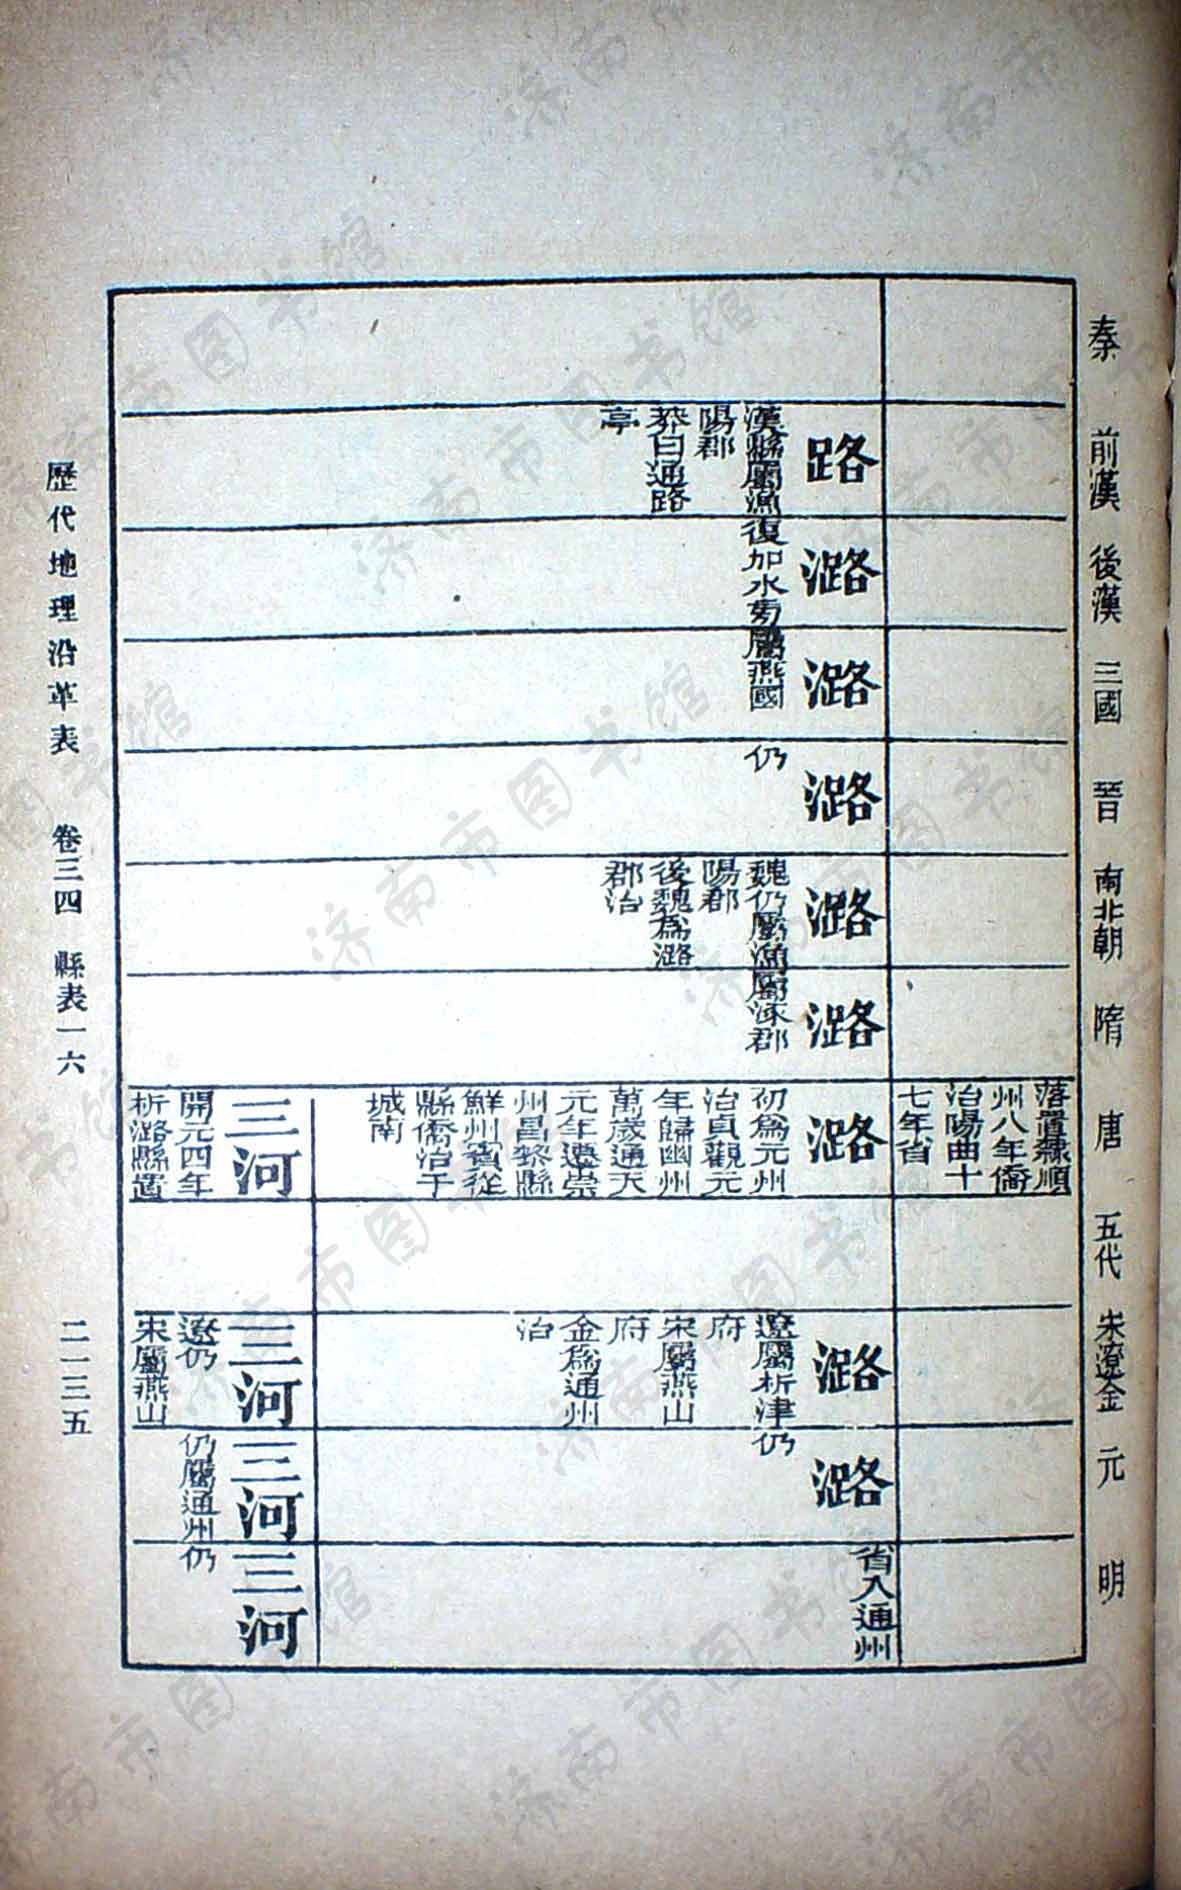 秦
前漢
後漢
三國
晉
南北朝
隋
唐
五代
宋遼金
元
明
落置隸順
州八年僑
治陽曲十
七年省
路
漢縣屬漁
陽郡
莽曰通路
亭
潞
復加水旁
潞
屬燕國
潞
仍
潞
魏仍屬漁
陽郡
後魏爲潞
郡治
潞
屬涿郡
潞
初爲元州
治貞觀元
年歸幽州
萬歲通天
元年遷崇
州昌黎縣
鮮州賓從
縣僑治于
城南
潞
遼屬析津
府
宋屬燕山
府
金爲通州
治
潞
仍
省入通州
三河
開元四年
析潞縣置
三河
遼仍
宋屬燕山
三河
仍屬通州
三河
仍
歷代地理沿革表 卷三四 縣表一六 二一三五
济南市图书馆